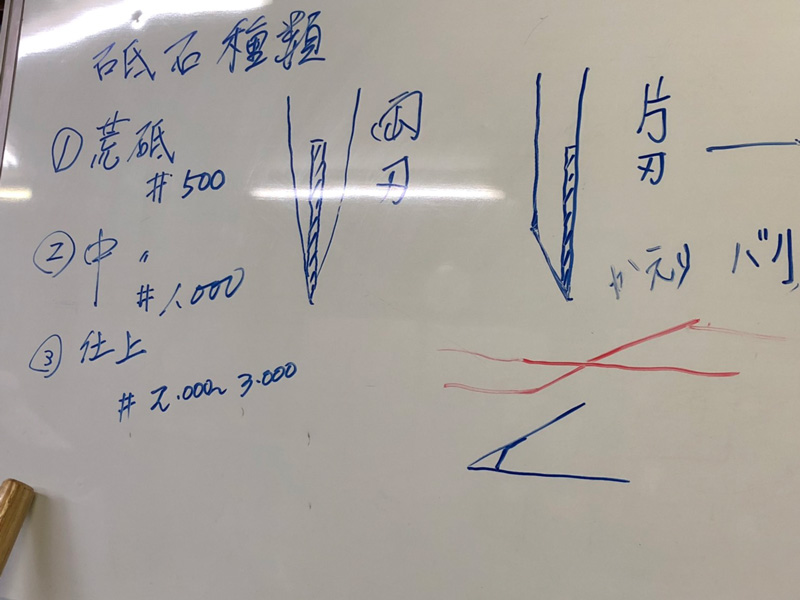 砥石種類
① 荒砥
#500
② 中 〃
#1.000
③ 仕上
#2.000~3.000
両刃
片刃
かえり バリ